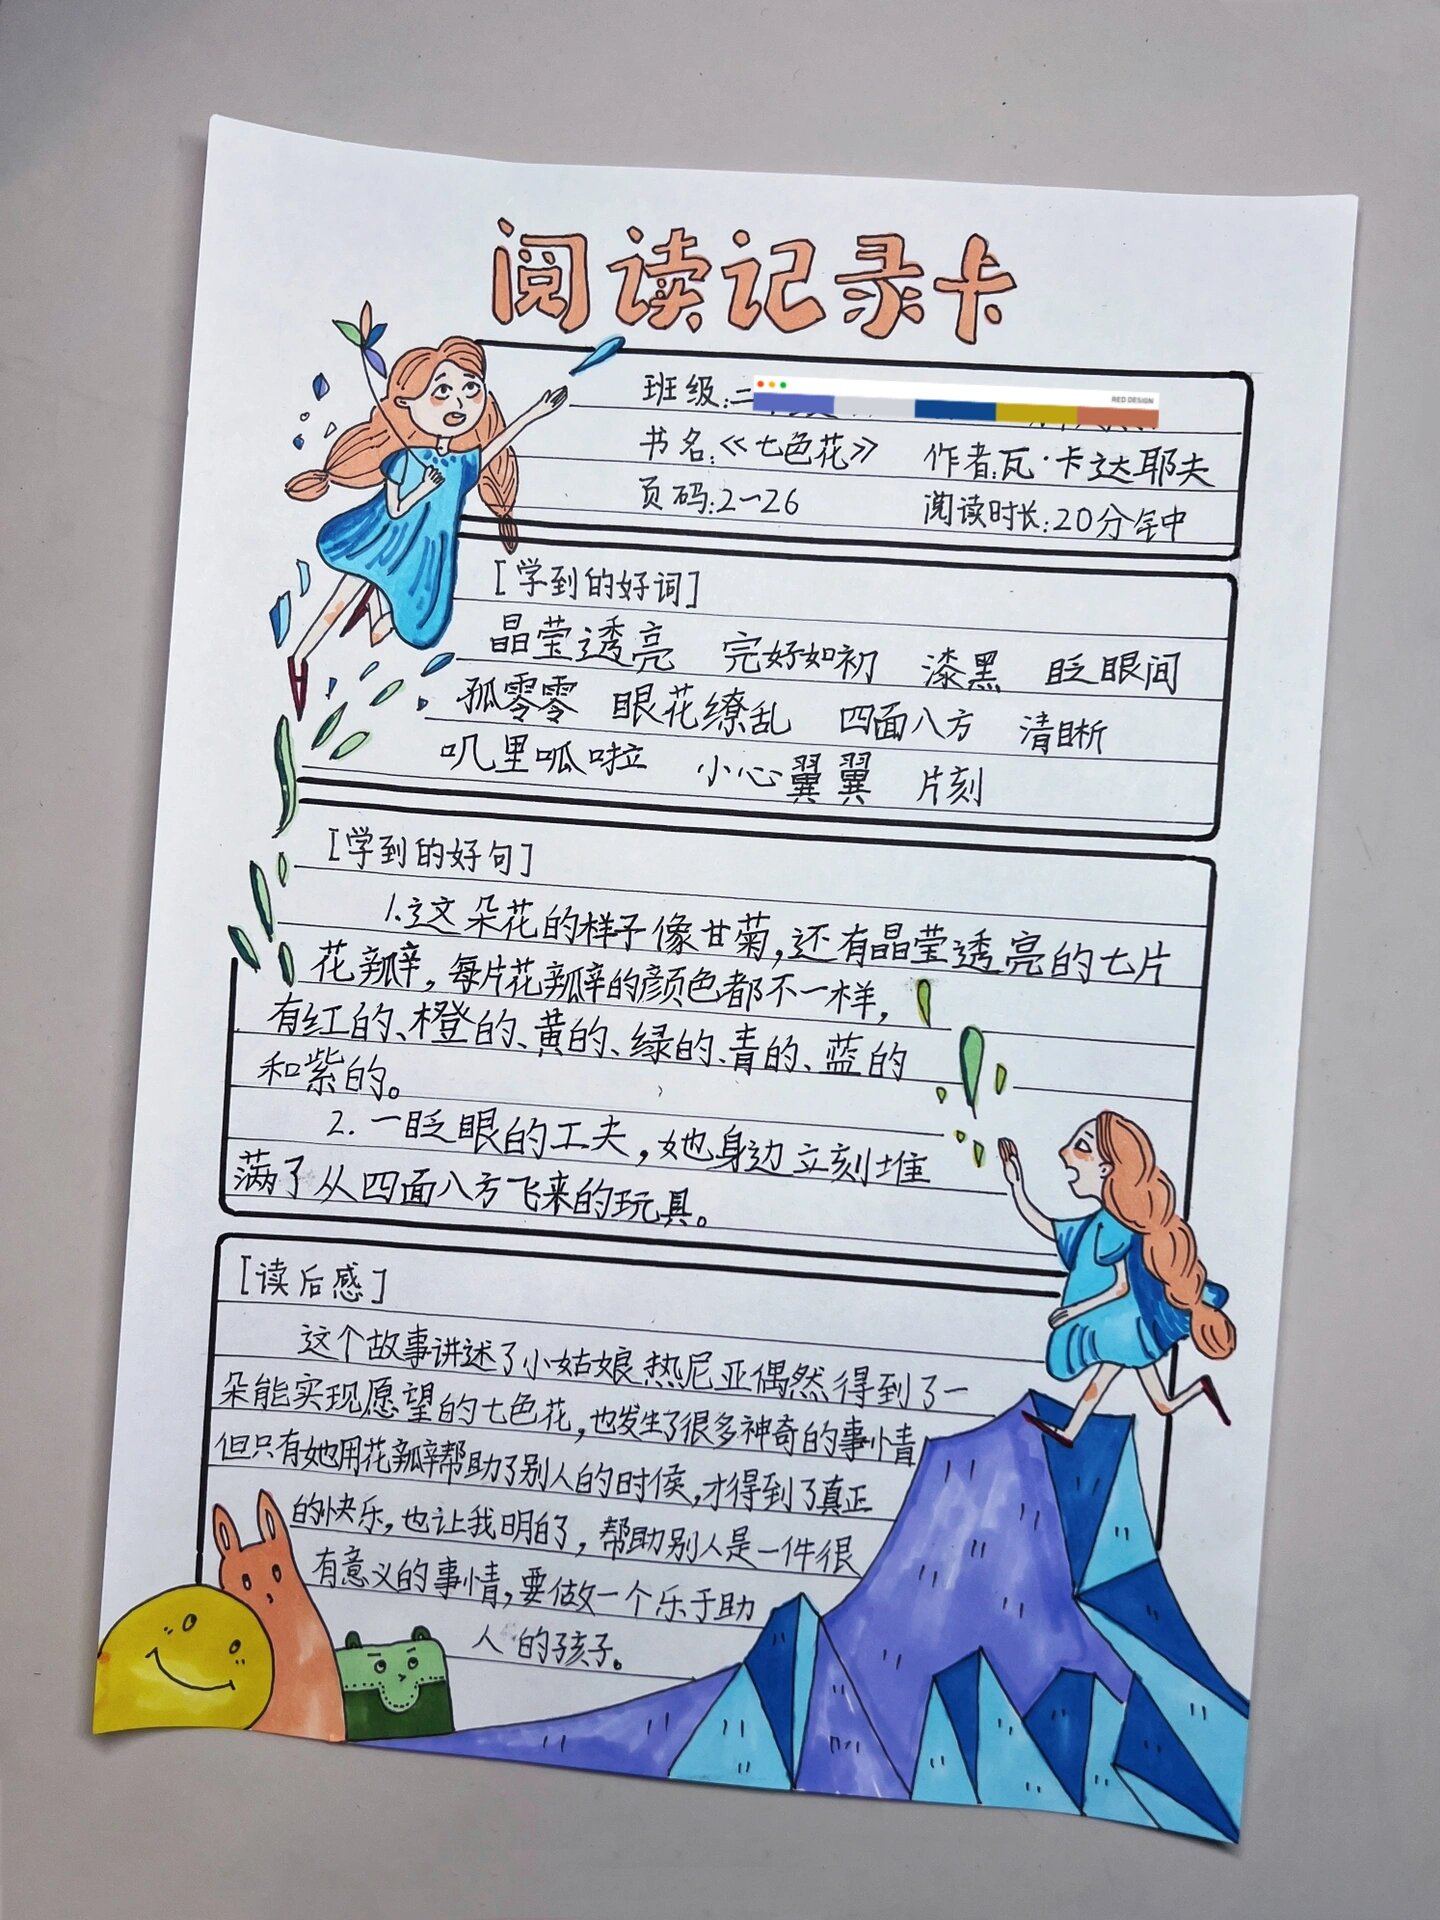 阅读记录卡
班级:二
RED DESIGN
书名:《七色花》 作者:瓦·卡达耶夫
页码:2—26 阅读时长:20分钟
[学到的好词]
晶莹透亮 完好如初 漆黑 眨眼间
孤零零 眼花缭乱 四面八方 清晰
叽里呱啦 小心翼翼 片刻
[学到的好句]
1.这朵花的样子像甘菊,还有晶莹透亮的七片
花瓣,每片花瓣的颜色都不一样,
有红的、橙的、黄的、绿的、青的、蓝的
和紫的。
2.一眨眼的工夫,她身边立刻堆
满了从四面八方飞来的玩具。
[读后感]
这个故事讲述了小姑娘热尼亚偶然得到了一
朵能实现愿望的七色花,也发生了很多神奇的事情
但只有她用花瓣帮助了别人的时候,才得到了真正
的快乐,也让我明白了,帮助别人是一件很
有意义的事情,要做一个乐于助
人的孩子。